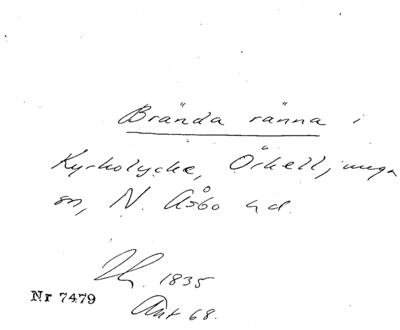 Brända ränna i
Kyrkolycke, Örkelljunga
sn, N. Åsbo hd.
1835
Nr 7479
Akt 68.